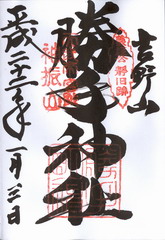 吉野山
勝手神社
平成二十二年一月三日